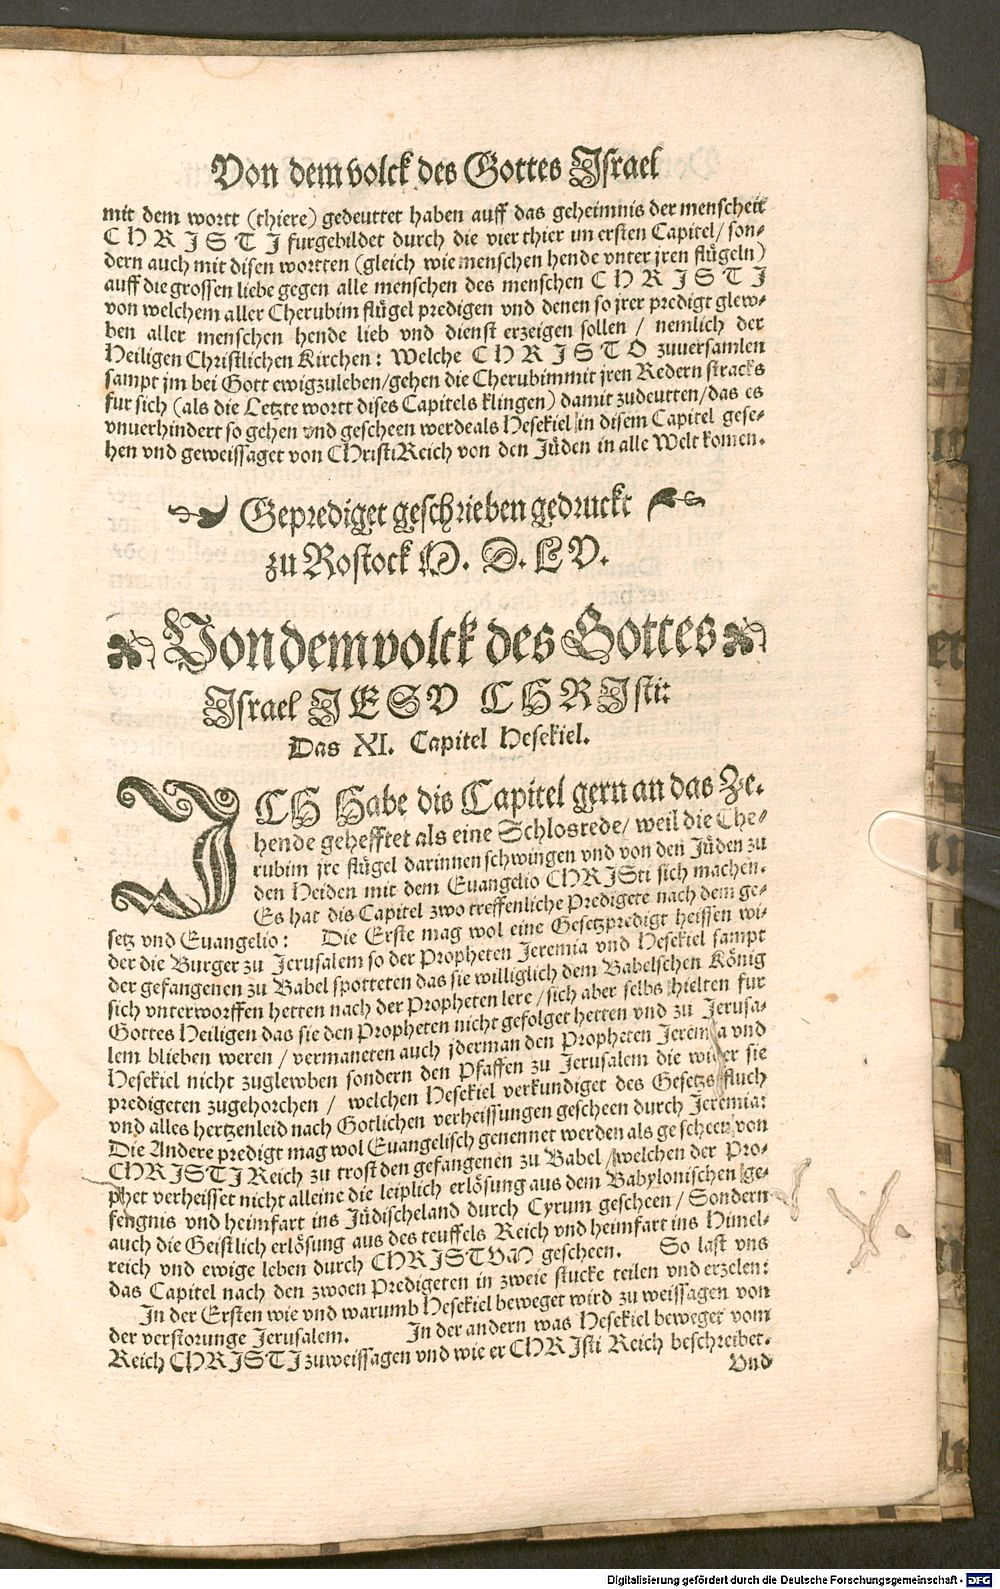 Von dem volck des Gottes Jsrael
mit dem wortt (thiere) gedeuttet haben auff das geheimnis der menscheit
CHRJSTJ furgebildet durch die vier thier im ersten Capitel/ son-
dern auch mit disen wortten (gleich wie menschen hende vnter jren flügeln)
auff die grossen liebe gegen alle menschen des menschen CHRJSTJ
von welchem aller Cherubim flügel predigen vnd denen so jrer predigt glew-
ben aller menschen hende lieb vnd dienst erzeigen sollen / nemlich der
Heiligen Christlichen Kirchen: Welche CHRJSTO zuuersamlen
sampt jm bei Gott ewigzuleben/gehen die Cherubim mit jren Redern stracks
fur sich (als die Letzte wortt dises Capitels klingen) damit zudeutten/das es
vnuerhindert so gehen vnd gescheen werde als Hesekiel in disem Capitel gese-
hen vnd geweissaget von CHristi Reich von den Jüden in alle Welt komen.
Geprediget geschrieben gedruckt
zu Rostock M. D. LV.
Von dem volck des Gottes
Jsrael JESV CHRJsti:
Das XI. Capitel Hesekiel.
JCH Habe dis Capitel gern an das Ze-
hende gehefftet als eine Schlosrede/ weil die Che-
rubim jre flügel darinnen schwingen vnd von den Jüden zu
den Heiden mit dem Euangelio CHRJSti sich machen.
Es hat dis Capitel zwo treffenliche Predigete nach dem ge-
setz vnd Euangelio: Die Erste mag wol eine Gesetzpredigt heissen wi-
der die Burger zu Jerusalem so der Propheten Jeremia vnd Hesekiel sampt
der gefangenen zu Babel spotteten das sie williglich dem Babelschen König
sich vnterworffen hetten nach der Propheten lere / sich aber selbs hielten fur
Gottes Heiligen das sie den Propheten nicht gefolget hetten vnd zu Jerusa-
lem blieben weren / vermaneten auch jderman den Propheten Jeremia vnd
Hesekiel nicht zuglewben sondern den Pfaffen zu Jerusalem die wider sie
predigeten zugehorchen / welchen Hesekiel verkundiget des Gesetzs fluch
vnd alles hertzenleid nach Gotlichen verheissungen gescheen durch Jeremia:
Die Andere predigt mag wol Euangelisch genennet werden als gescheen von
CHRJSTJ Reich zu trost den gefangenen zu Babel / welchen der Pro-
phet verheisset nicht alleine die leiplich erlösung aus dem Babylonischen ge-
fengnis vnd heimfart ins Jüdischeland durch Cyrum gescheen / Sondern
auch die Geistlich erlösung aus des teuffels Reich vnd heimfart ins Himel-
reich vnd ewige leben durch CHRJSTVM gescheen. So last vns
das Capitel nach den zwoen Predigeten in zweie stucke teilen vnd erzelen:
In der Ersten wie vnd warumb Hesekiel beweget wird zu weissagen von
der verstorunge Jerusalem. In der andern was Hesekiel beweget vom
Reich CHRJSTJ zuweissagen vnd wie er CHRJsti Reich beschreibet.
Vnd
Digitalisierung gefördert durch die Deutsche Forschungsgemeinschaft - DFG